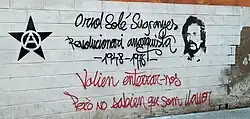 Oriol Solé Sugranyes
Revolucionari anarquista
-1948-1976-
Volien enterrar-nos
Però no sabien que som llavor